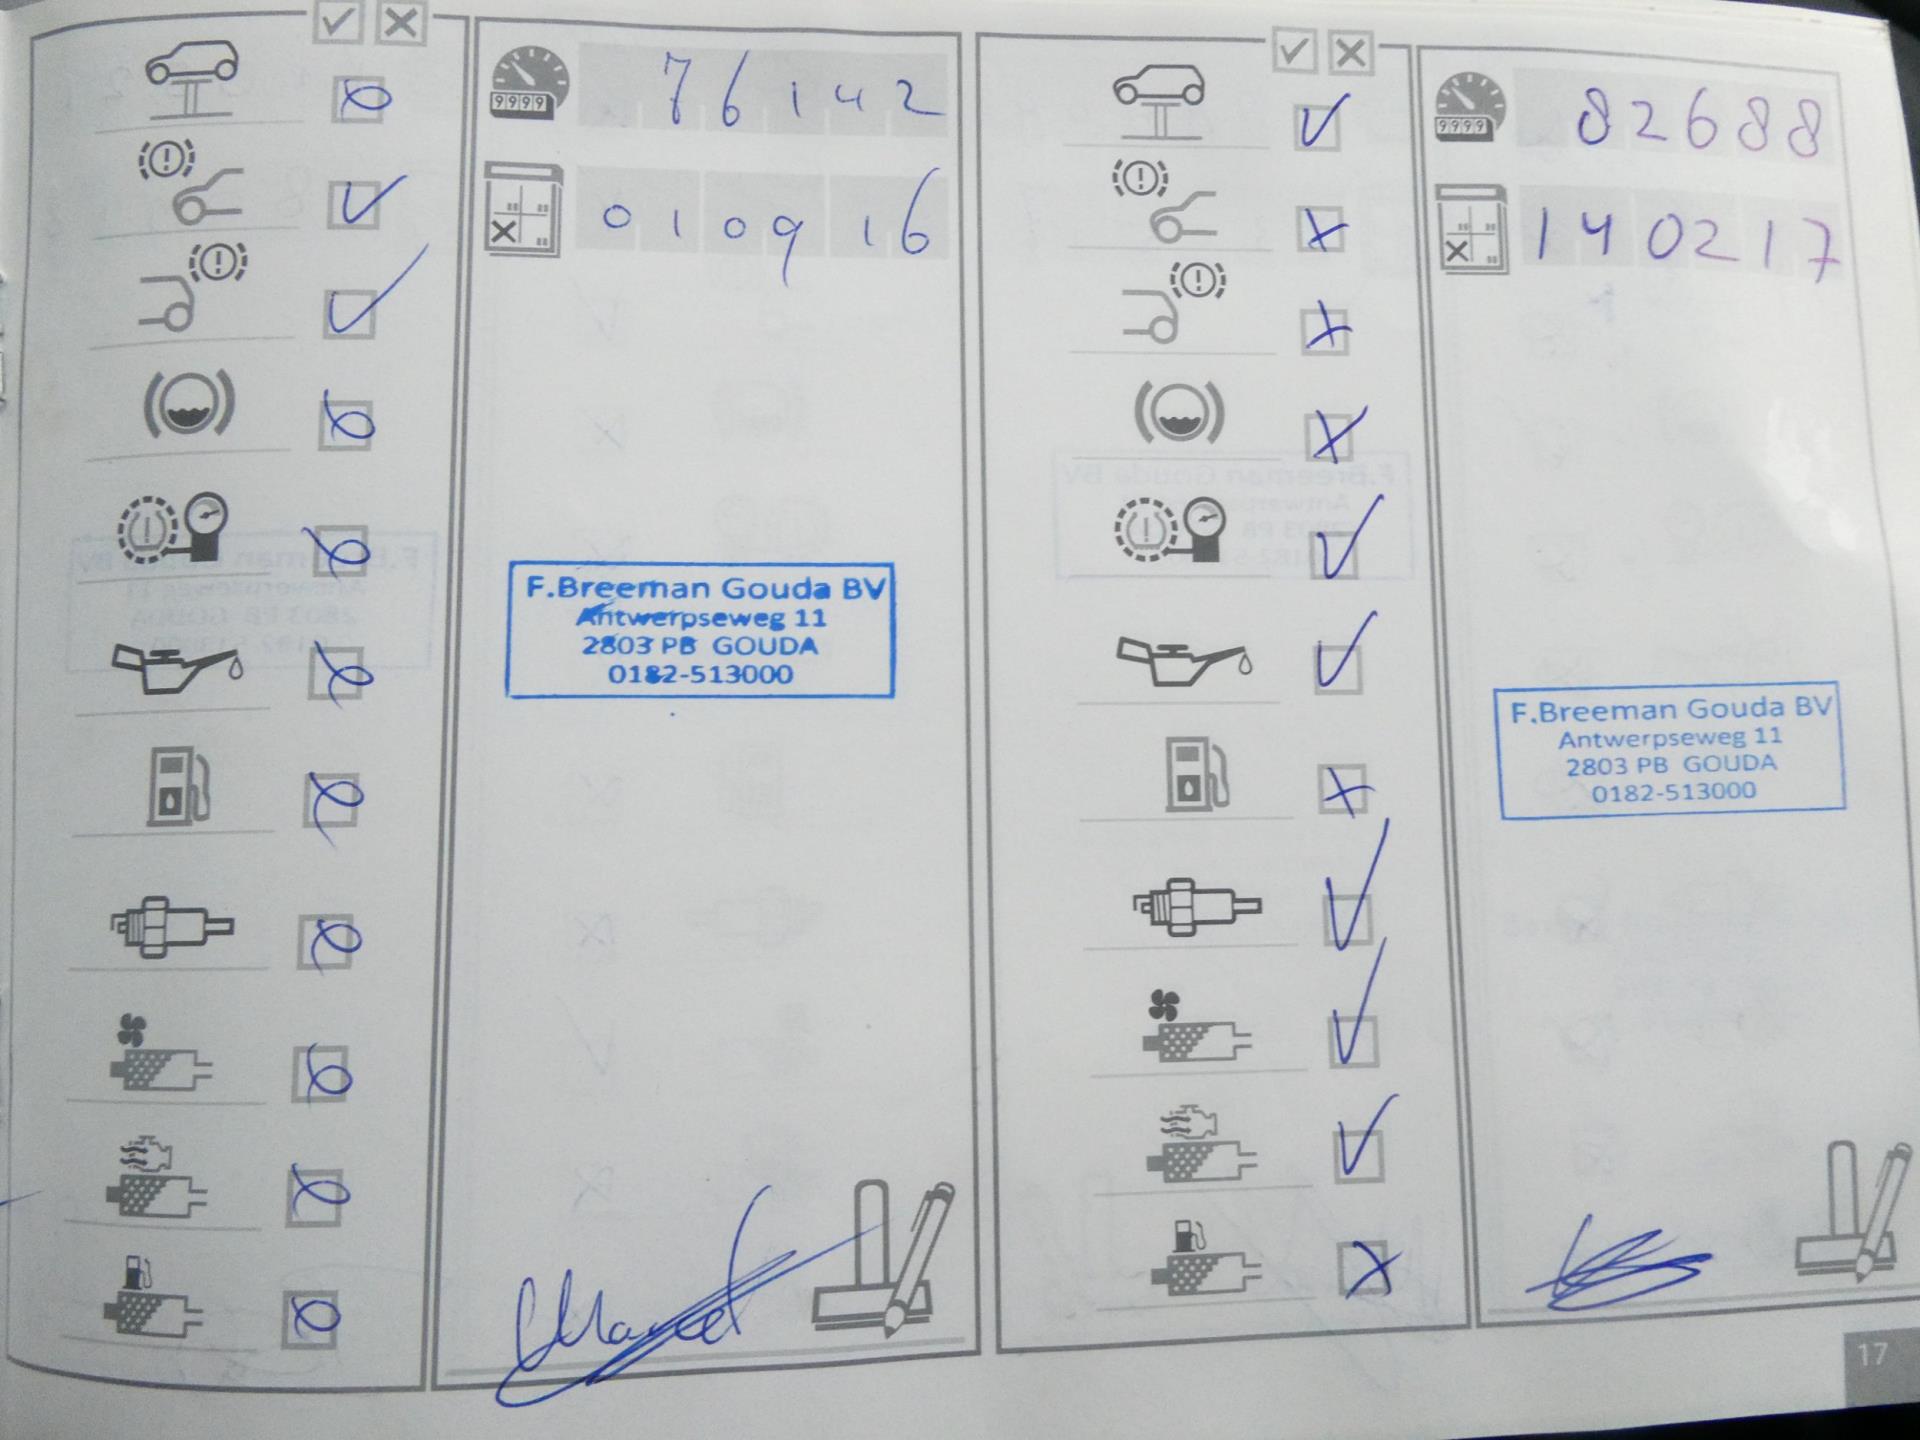 76142
9999
010916
F.Breeman Gouda BV
Antwerpseweg 11
2803 PB GOUDA
0182-513000
82688
9999
140217
F.Breeman Gouda BV
Antwerpseweg 11
2803 PB GOUDA
0182-513000
17